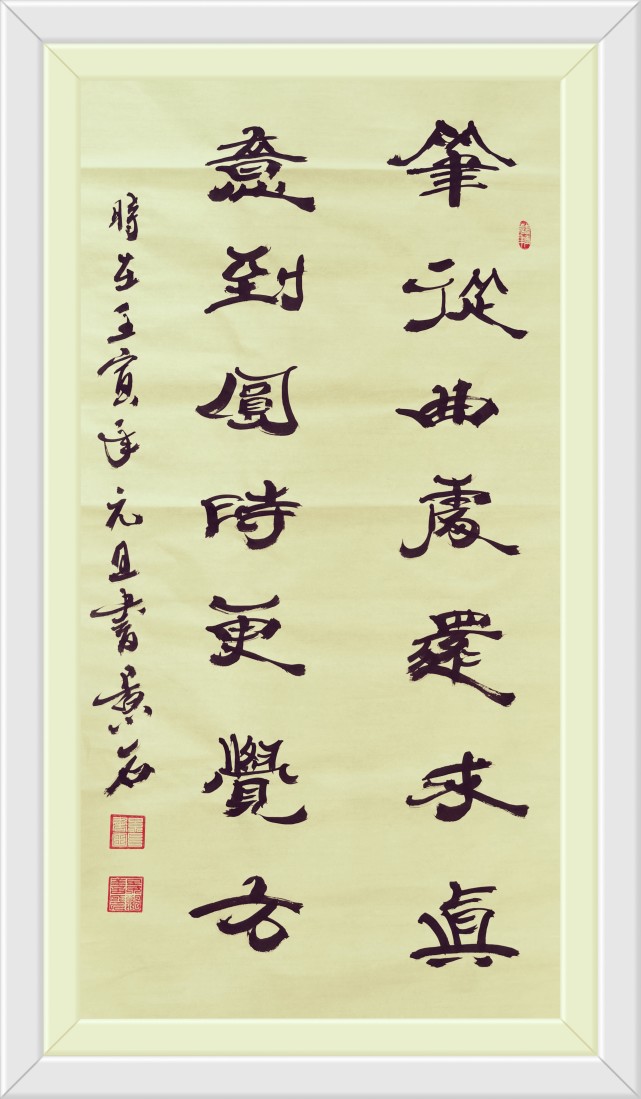 筆從曲處還求眞
意到圓時更覺方
時在壬寅年元旦書